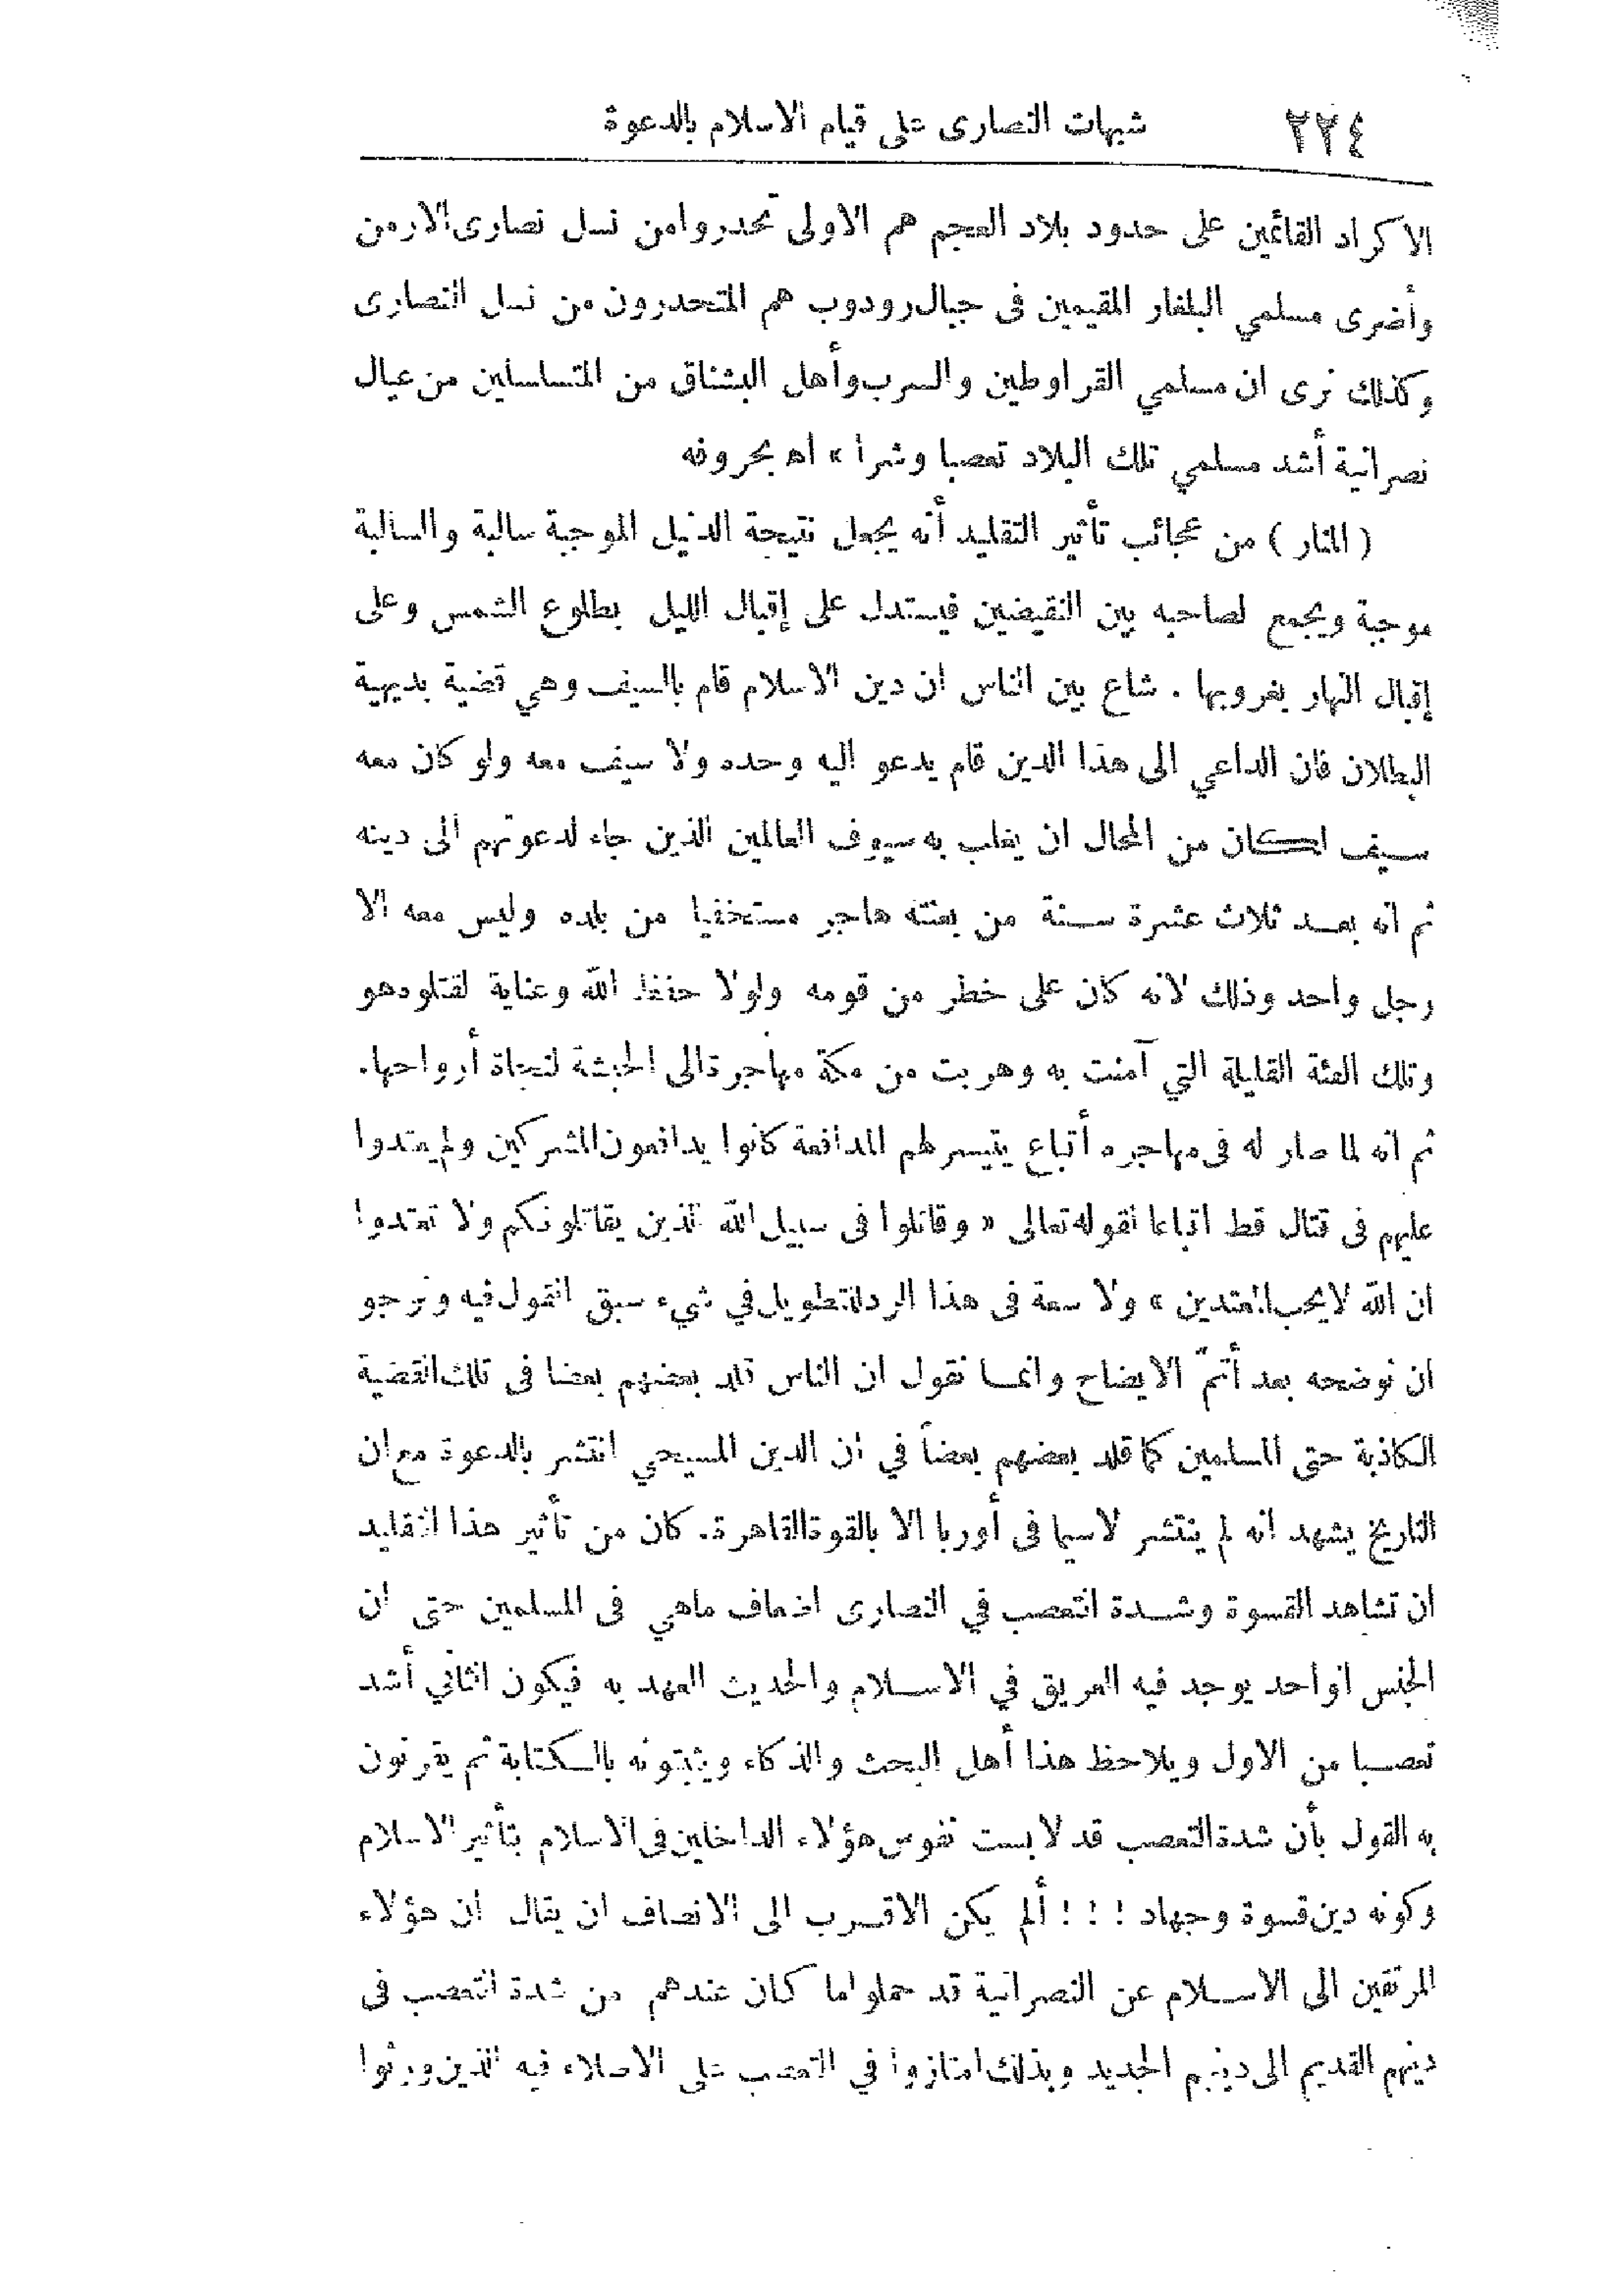 ٢٢٤ شبهات النصارى على قيام الاسلام بالدعوة
الاكراد القائمين على حدود بلاد العجم هم الاولى تحدروا من نسل نصارى الارمن
وأضرى مسلمي البلغار المقيمين فى جبال رودوب هم المتحدرون من نسل النصارى
وكذلك نرى ان مسلمي القراوطين والسرب وأهل البشناق من المتساسلين من عيال
نصرانية أشد مسلمي تلك البلاد تعصبا وشرا » اه بحروفه
( المنار ) من عجائب تأثير التقليد أنه يجعل نتيجة الدليل الموجبة سالبة والسالبة
موجبة ويجمع لصاحبه بين النقيضين فيستدل على إقبال الليل بطلوع الشمس وعلى
إقبال النهار بغروبها . شاع بين الناس ان دين الاسلام قام بالسيف وهي قضية بديهية
البطلان فان الداعي الى هذا الدين قام يدعو اليه وحده ولا سيف معه ولو كان معه
سيف لكان من المحال ان يغلب به سيوف العالمين الذين جاء لدعوتهم الى دينه
ثم انه بعد ثلاث عشرة سنة من بعثته هاجر مستخفيا من بلده وليس معه الا
رجل واحد وذلك لانه كان على خطر من قومه ولولا حفظ الله وعناية لقتلوه هو
وتلك الفئة القليلة التي آمنت به وهربت من مكة مهاجرة الى الحبشة لنجاة أرواحها.
ثم انه لما صار له فى مهاجره أتباع يتيسر لهم المدافعة كانوا يدافعون المشركين ولم يعتدوا
عليهم فى قتال قط اتباعا لقوله تعالى « وقاتلوا فى سبيل الله الذين يقاتلونكم ولا تعتدوا
ان الله لا يحب المعتدين » ولا سعة فى هذا الرد للتطويل في شيء سبق القول فيه ونرجو
ان نوضحه بعد أتمّ الايضاح وانما نقول ان الناس قلد بعضهم بعضا فى تلك القضية
الكاذبة حتى المسلمين كما قلد بعضهم بعضاً في ان الدين المسيحي انتشر بالدعوة مع ان
التاريخ يشهد انه لم ينتشر لاسيما فى أوربا الا بالقوة القاهرة. كان من تأثير هذا التقليد
ان تشاهد القسوة وشدة التعصب في النصارى اضعاف ماهي فى المسلمين حتى ان
الجنس الواحد يوجد فيه العريق في الاسلام والحديث العهد به فيكون الثاني أشد
تعصبا من الاول ويلاحظ هذا أهل البحث والذكاء ويثبتونه بالكتابة ثم يقرنون
به القول بأن شدة التعصب قد لابست نفوس هؤلاء الداخلين فى الاسلام بتأثير الاسلام
وكونه دين قسوة وجهاد ! ! ! ألم يكن الاقرب الى الانصاف ان يقال ان هؤلاء
المرتقين الى الاسلام عن النصرانية قد حملوا ما كان عندهم من شدة التعصب فى
دينهم القديم الى دينهم الجديد وبذلك امتازوا في التعصب على الاصلاء فيه الذين ورثوا